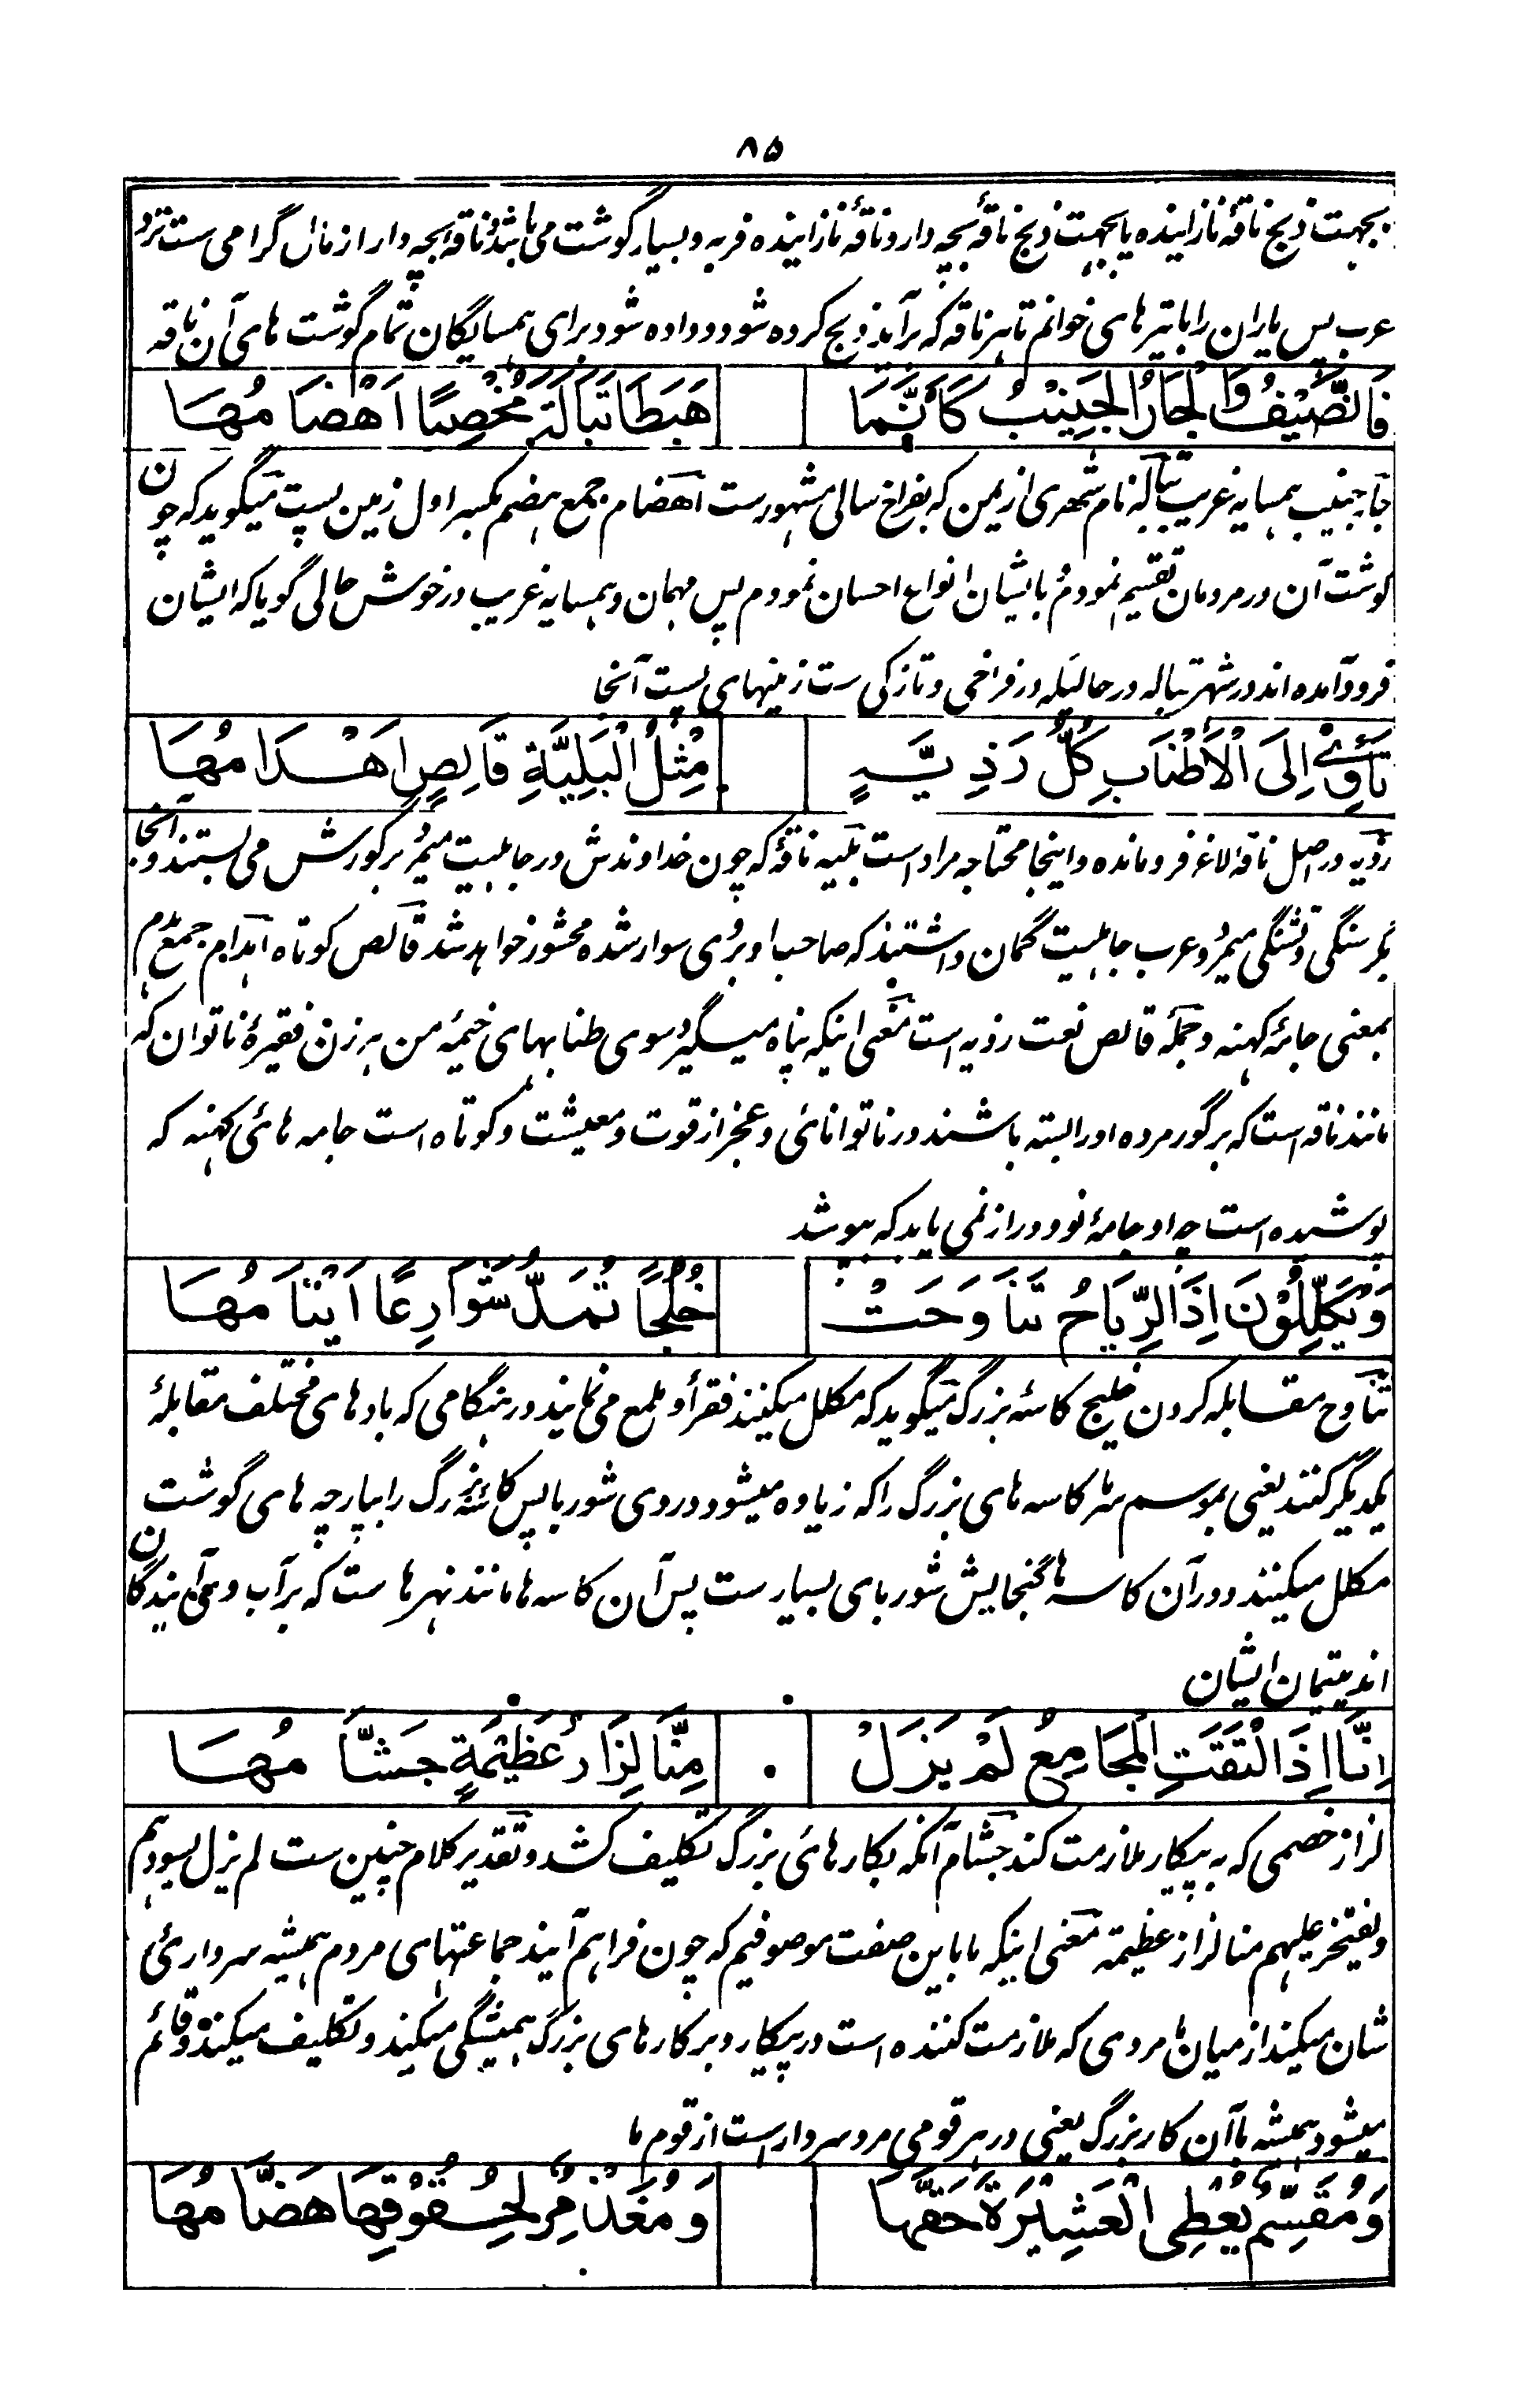 ۸۵
بجهت ذبح ناقهٔ نازاینده یا بجهت ذبح ناقهٔ بچه دار و ناقهٔ نازاینده فربه و بسیار گوشت می باشد و ناقه بچه دار از مال گرامی ست نزد
عرب پس یاران را با تیرهای خوانم تا هر ناقه که برآید ذبح کرده شود و داده شود برای همسایگان تمام گوشت های آن ناقه
فَالضَّيْفُ وَالْجَارُ الْجَنِيْبُ كَاَنَّمَا هَبَطَا تَبَالَةَ مُخْصِبًا اَهْضَامُهَا
جار جنیب همسایه غریب تباله نام شهری از یمن که بفراخ سالی مشهورست اهضام جمع هضم بکسر اول زمین پست میگوید که چون
گوشت آن در مردمان تقسیم نمودم و بایشان انواع احسان نمودم پس مهمان و همسایه غریب در خوش حالی گویا که ایشان
فرود آمده اند در شهر تباله در حالیکه در فراخی و تازگی ست زمینهای پست آنجا
تَأْوِيْ اِلَى الْاَطْنَابِ كُلُّ رَذِيَّةٍ مِثْلُ الْبَلِيَّةِ قَالِصٍ اَهْدَامُهَا
رذیه در اصل ناقه لاغر فرومانده و اینجا محتاجه مراد است بلیه ناقهٔ که چون خداوندش در جاهلیت میمرد بر گورش می بستند و آنجا
بگرسنگی و تشنگی میمرد و عرب جاهلیت گمان داشتند که صاحب او بروی سوار شده محشور خواهد شد قالص کوتاه اهدام جمع هدم
بمعنی جامهٔ کهنه و جمله قالص نعت رذیه است معنی اینکه پناه میگیرد سوی طنابهای خیمهٔ من هر زن فقیرهٔ ناتوان که
مانند ناقه است که بر گور مرده او را بسته باشند در ناتوانائی و عجز از قوت و معیشت و کوتاه است جامه هائی کهنه که
پوشیده است چه او جامهٔ نو و دراز نمی یابد که پوشد
وَيُكَلِّلُوْنَ اِذَا الرِّيَاحُ تَنَاوَحَتْ خُلُجًا تُمَدُّ شَوَارِعًا اَيْتَامُهَا
تناوح مقابله کردن خلیج کاسهٔ بزرگ میگوید که مکلل میکنند فقرا و ملمع می نمایند در هنگامی که بادهای مختلف مقابلهٔ
یکدیگر کنند یعنی بموسم سرما کاسه های بزرگ را که زیاده میشود در وی شوربا پس کاسهٔ بزرگ را بپارچه های گوشت
مکلل میکنند و در آن کاسه ها گنجایش شوربای بسیار ست پس آن کاسه ها مانند نهرها ست که بر آب وی آیندگان
اند یتیمان ایشان
اِنَّا اِذَا الْتَقَتِ الْمَجَامِعُ لَمْ يَزَلْ مِنَّا لِزَازُ عَظِيْمَةٍ جَشَّامُهَا
لزاز خصمی که به پیکار ملازمت کند جشام آنکه بکارهائی بزرگ تکلیف کشد و تقدیر کلام چنین ست لم یزل یسودهم
و یفتخر علیهم منا لزاز عظیمة معنی اینکه ما باین صفت موصوفیم که چون فراهم آیند جماعتهای مردم همیشه سرداری
شان میکند از میان ما مردی که ملازمت کننده است در پیکار و بر کارهای بزرگ همیشگی میکند و تکلیف میکند و قائم
میشود همیشه با آن کار بزرگ یعنی در هر قومی مرد سردار است از قوم ما
وَمُقَسِّمٌ يُعْطِى الْعَشِيْرَةَ حَقَّهَا وَمُغَذْمِرٌ لِحُقُوْقِهَا هَضَّامُهَا